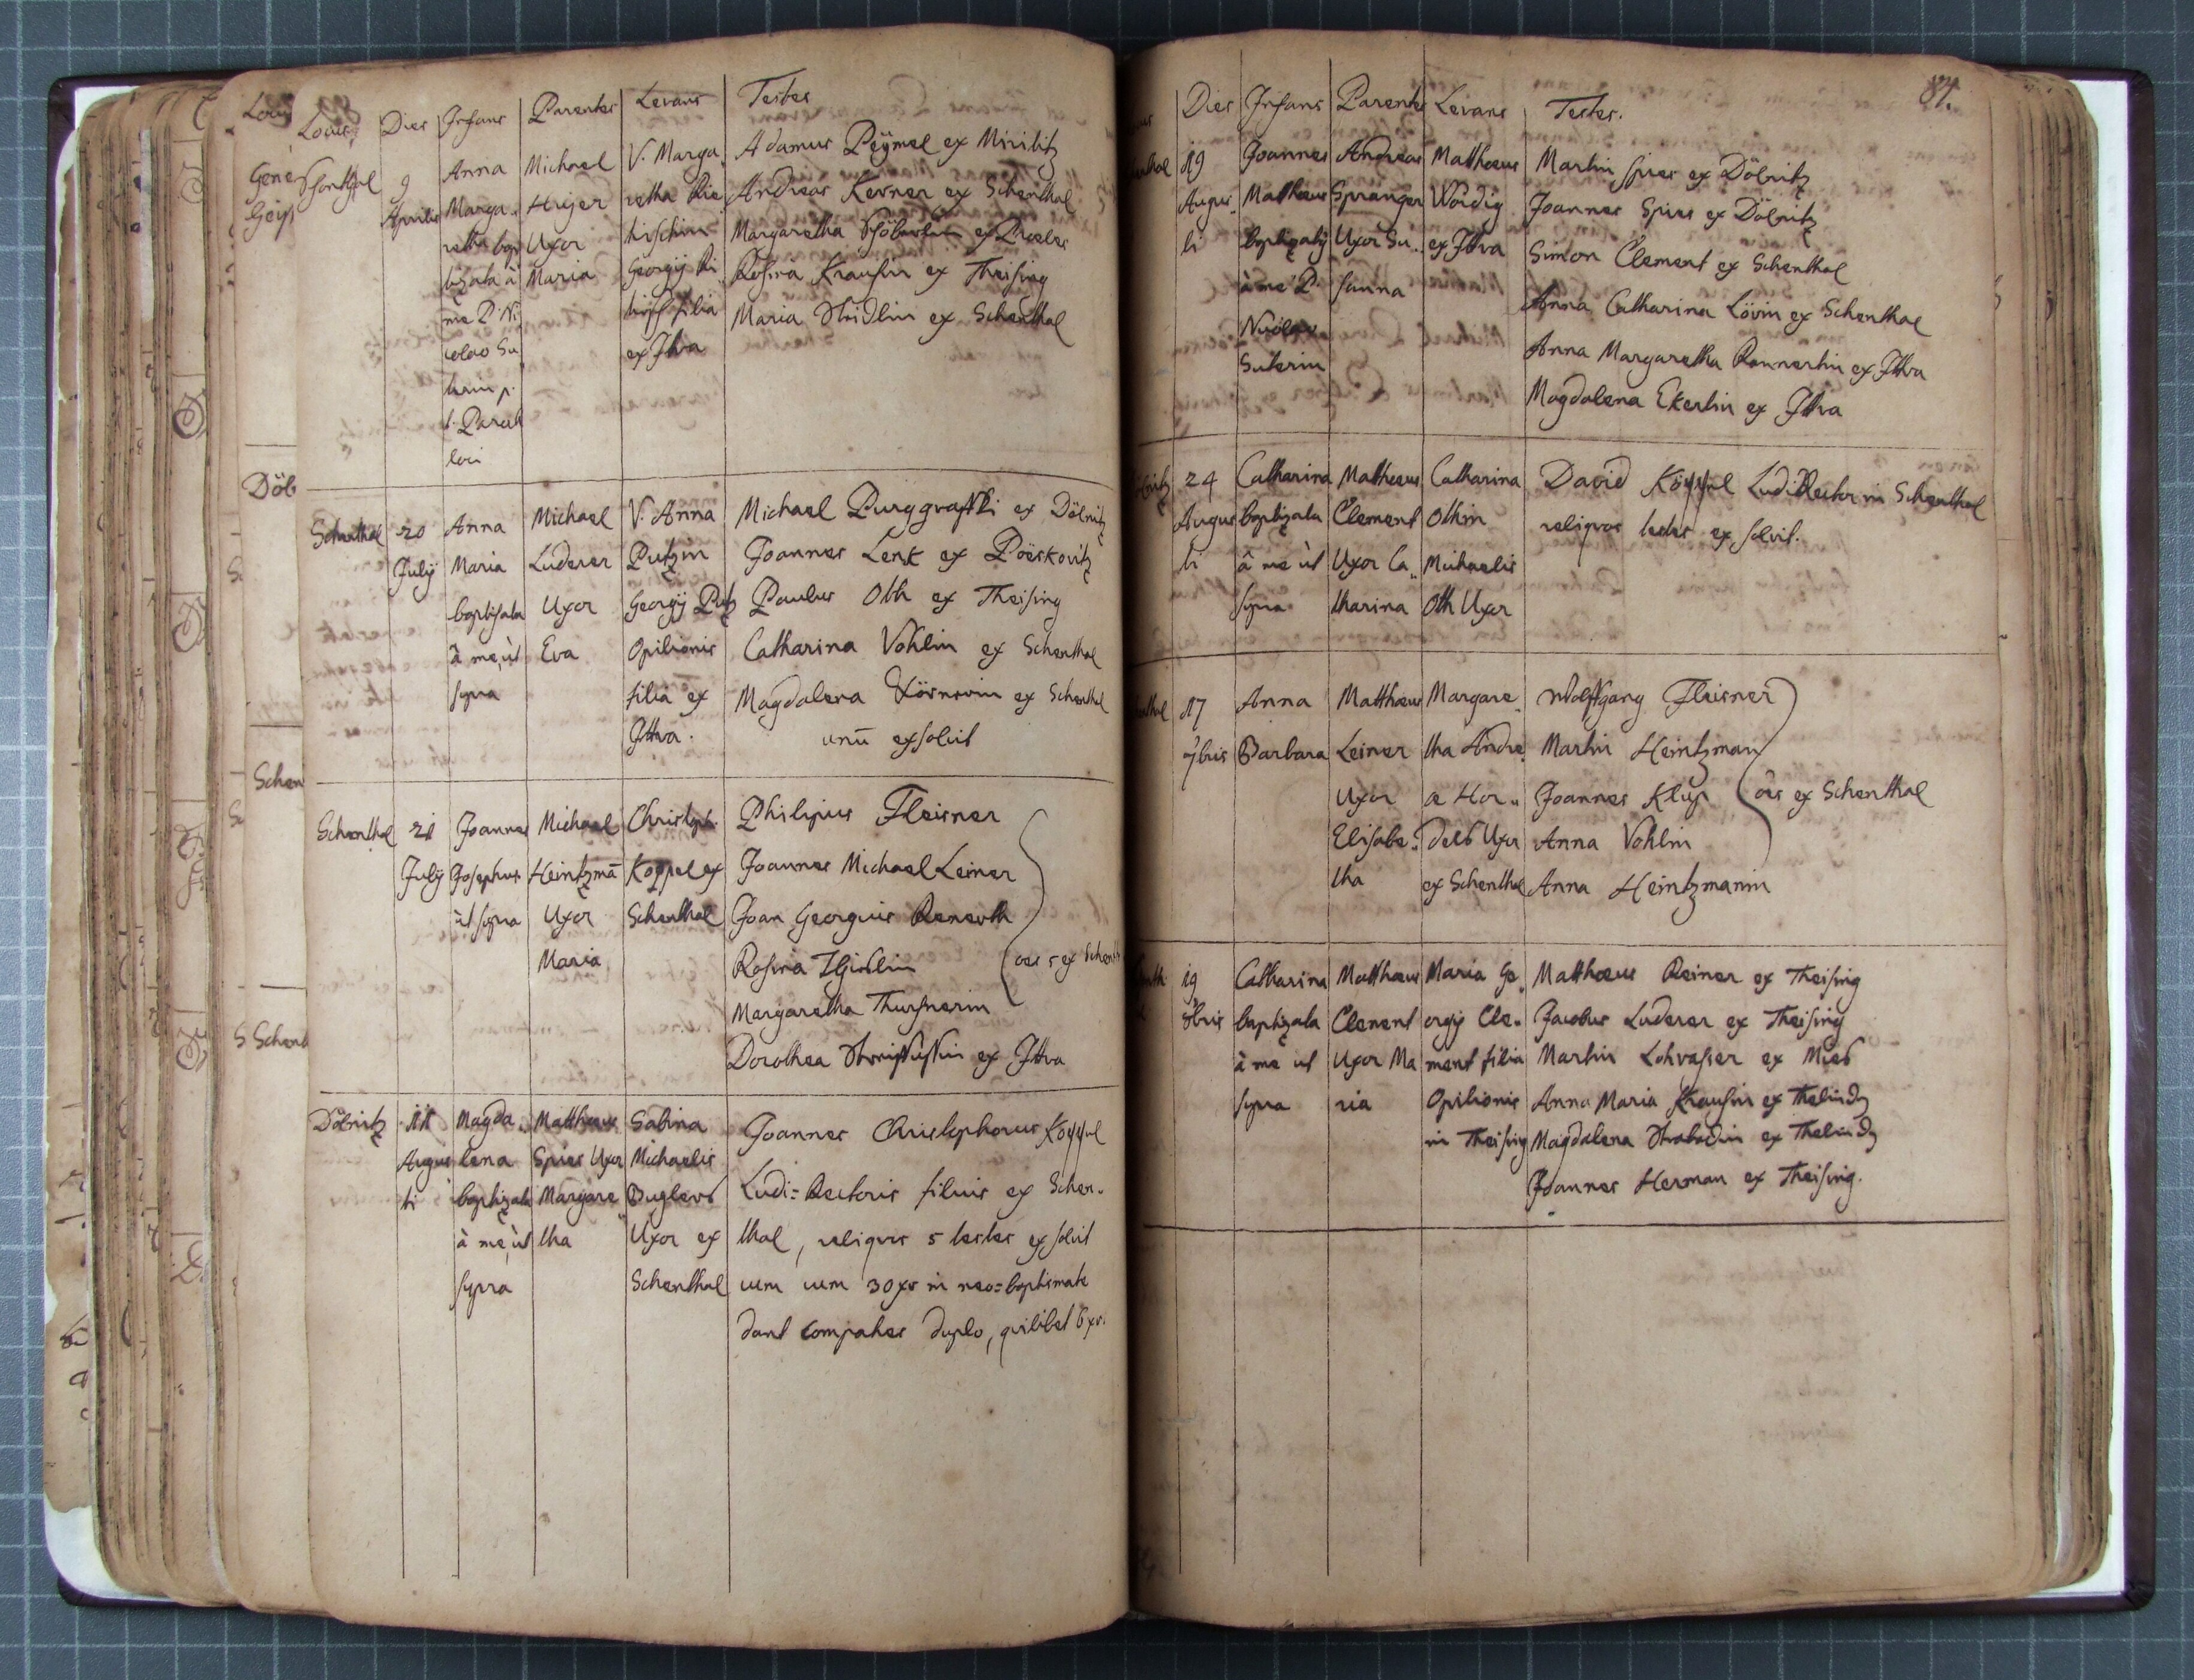 Locus Dies Infans Parentes Levans Testes
Schonthal 9 Aprilis
Anna
Marga„
retha bap
tizata à
me P. Ni
colao Su
terin p.
t. Paroch
loci
Michael
Huger
Uxor
Maria
V. Marga„
retha
Georgij
filia
ex Ittva
Adamus Peÿmel ex Miribitz
Andreas Kerner ex Schenthal
Margaretha ex
Rosina Krausin ex Theising
Maria ex Schenthal
Schenthal 20
Julÿ
Anna
Maria
baptisata
à me, ùt
supra
Michael
Luderer
Uxor
Eva
V. Anna
Putzin
Georgÿ Putz
Opilionis
filia ex
Ittva.
Michael Purggraffski ex Dölnitz
Joannes Lenk ex Pöeskovitz
Paulus Oth ex Theising
Catharina Vohlin ex Schenthal
Magdalena ex Schenthal
unū exsolvit
Schenthal 21
Julÿ
Joannes
Josephus
ùt supra
Michael
Heintzmā
Uxor
Maria
Christoph.
Koppel ex
Schenthal
Philipus Fleisner
Joannes Michael Leiner
Joan Georgius Renerth
Rosina
Margaretha Thursnerin
oēs 5 ex Schenth
Dorothea ex Ittva
Dölnitz 11
Augus
ti
Magda„
lena
baptizata
à me, ùt
supra
Matthæus
Spies Uxor
Margare„
tha
Sabina
Michaelis
Duglers
Uxor ex
Schenthal
Joannes Christophorus Köppel
Ludi=Rectoris filius ex Schen„
thal, reliquos 5 testes exsolvit
cum 30 xr in neo=baptismate
dant compatres duplo, quilibet 6 xr.
84.
Dies Infans Parentes Levans Testes.
19
Augus„
ti
Joannes
Matthæus
baptizatÿ
à me P.
Nicolao
Suterin
Andreas
Spranger
Uxor Su„
sanna
Matthæus
Wördig
ex Ittva
Martin Spies ex Dölnitz
Joannes Spies ex Dölnitz
Simon Clement ex Schenthal
Anna Catharina Lövin ex Schenthal
Anna Margaretha Rennertin ex Ittva
Magdalena Ekertin ex Ittva
24
Augus
ti
Catharina
baptizata
à me ùt
supra
Matthæus
Clement
Uxor Ca„
tharina
Catharina
Othin
Michaelis
Oth Uxor
David Köppel LudiRector in Schenthal
reliquos testes exsolvit.
17
7bris
Anna
Barbara
Matthæus
Leiner
Uxor
Elisabe„
tha
Margare„
tha Andre„
æ Hor„
delb Uxor
ex Schenthal
Wolffgang Fleisner
Martin Heintzman
Joannes Klup
Anna Vohlin
Anna Heintzmanin
oēs ex Schenthal
19
8bris
Catharina
baptizata
à me ut
supra
Matthæus
Clement
Uxor Ma
ria
Maria Ge„
orgÿ Cle„
ment filia
Opilionis
in Theising
Matthæus Reiner ex Theising
Jacobus Luderer ex Theising
Martin Lohvasser ex Mies
Anna Maria Krausin ex
Magdalena ex
Joannes Herman ex Theising.